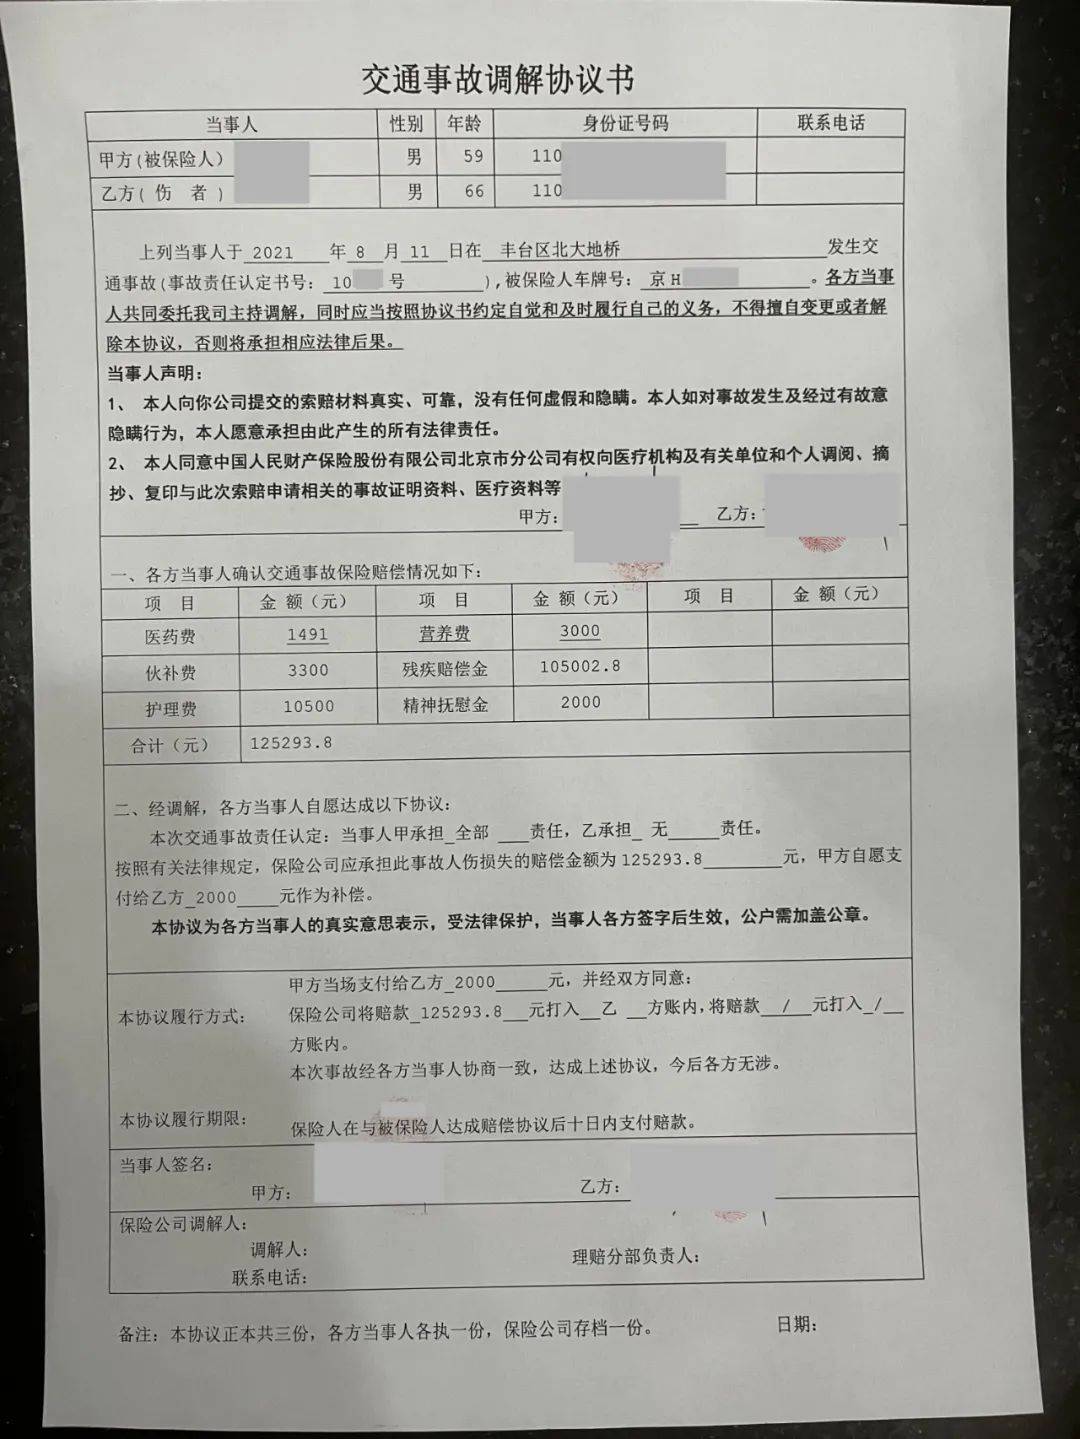 交通事故调解协议书
当事人 性别 年龄 身份证号码 联系电话
甲方(被保险人) 男 59 110
乙方( 伤 者 ) 男 66 110
上列当事人于 2021 年 8 月 11 日在 丰台区北大地桥 发生交
通事故(事故责任认定书号: 10 号 ),被保险人车牌号: 京 H 。各方当事
人共同委托我司主持调解，同时应当按照协议书约定自觉和及时履行自己的义务，不得擅自变更或者解
除本协议，否则将承担相应法律后果。
当事人声明：
1、 本人向你公司提交的索赔材料真实、可靠，没有任何虚假和隐瞒。本人如对事故发生及经过有故意
隐瞒行为，本人愿意承担由此产生的所有法律责任。
2、 本人同意中国人民财产保险股份有限公司北京市分公司有权向医疗机构及有关单位和个人调阅、摘
抄、复印与此次索赔申请相关的事故证明资料、医疗资料等
甲方： 乙方：
一、各方当事人确认交通事故保险赔偿情况如下：
项 目 金 额（元） 项 目 金 额（元） 项 目 金 额（元）
医药费 1491 营养费 3000
伙补费 3300 残疾赔偿金 105002.8
护理费 10500 精神抚慰金 2000
合计（元） 125293.8
二、经调解，各方当事人自愿达成以下协议：
本次交通事故责任认定：当事人甲承担_全部 ___责任，乙承担_ 无_____责任。
按照有关法律规定，保险公司应承担此事故人伤损失的赔偿金额为 125293.8________元，甲方自愿支
付给乙方_2000____元作为补偿。
本协议为各方当事人的真实意思表示，受法律保护，当事人各方签字后生效，公户需加盖公章。
甲方当场支付给乙方_2000_____元，并经双方同意：
本协议履行方式： 保险公司将赔款_125293.8__元打入__乙 __方账内，将赔款__/__元打入_/__
方账内。
本次事故经各方当事人协商一致，达成上述协议，今后各方无涉。
本协议履行期限： 保险人在与被保险人达成赔偿协议后十日内支付赔款。
当事人签名：
甲方： 乙方：
保险公司调解人：
调解人： 理赔分部负责人：
联系电话：
备注：本协议正本共三份，各方当事人各执一份，保险公司存档一份。 日期：